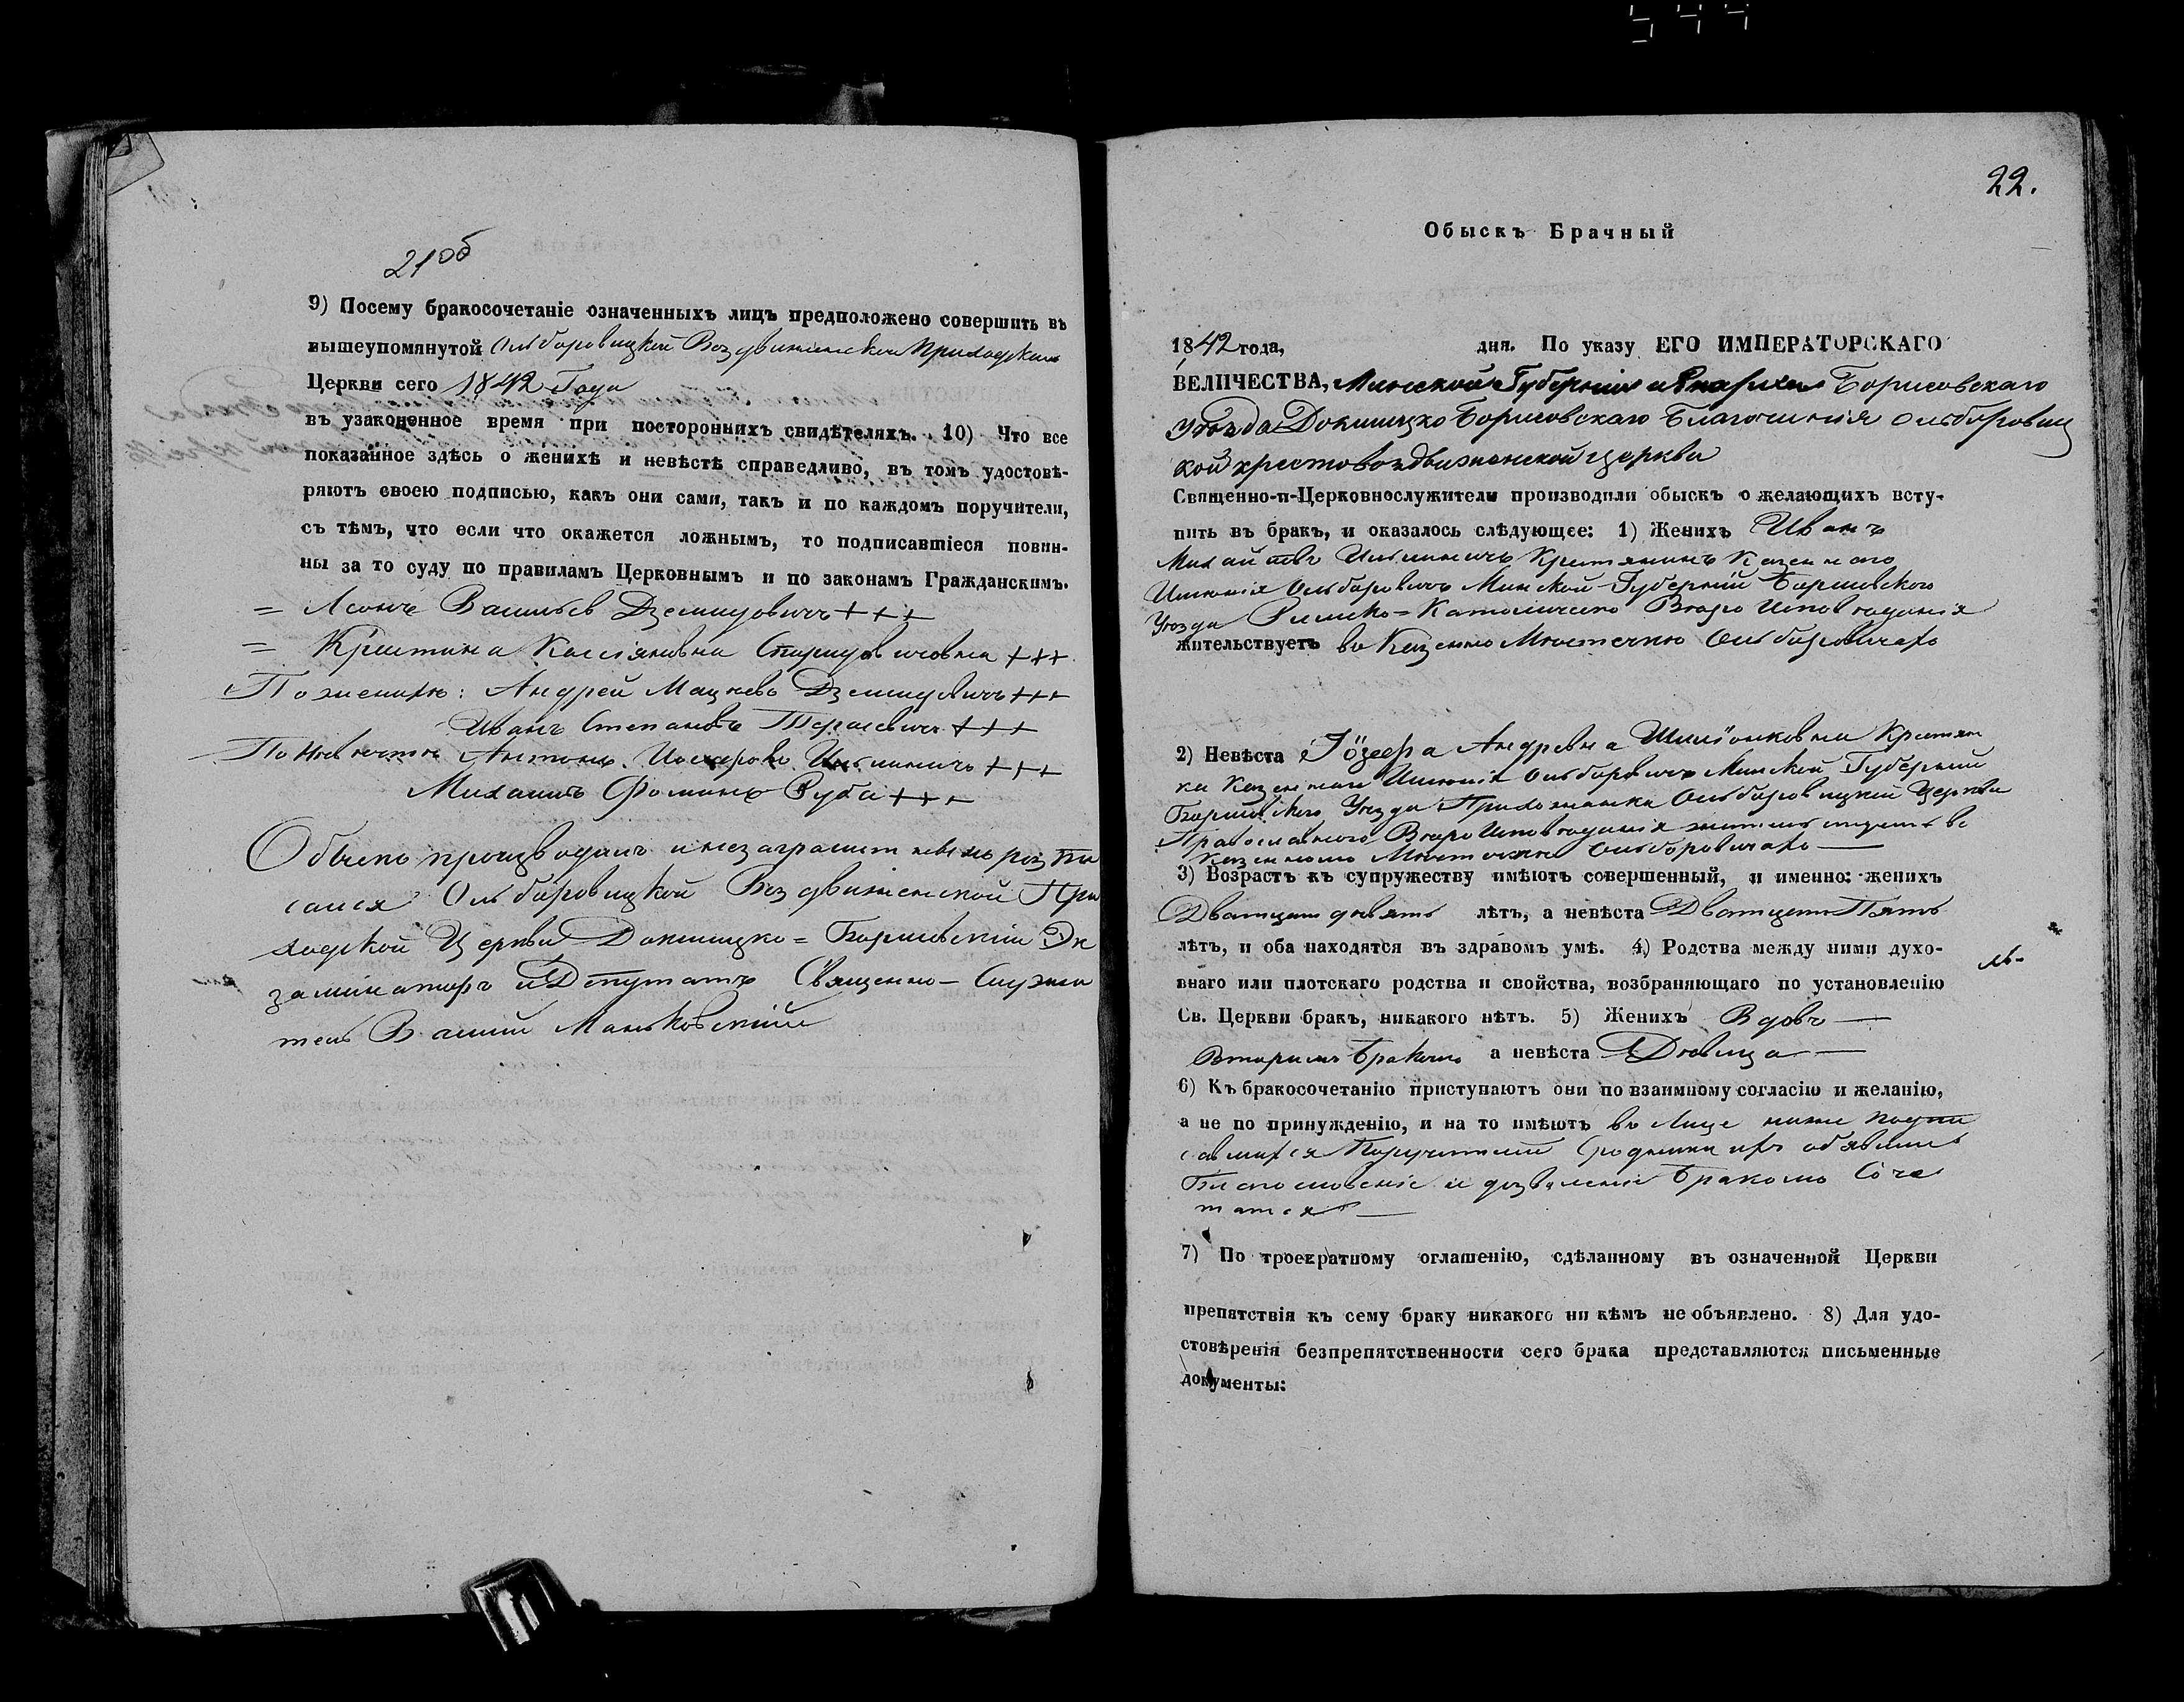 21об
9) Посему бракосочетаніе означенныхъ лицъ предположено совершить въ
вышеупомянутой Ольборовицкой Воздвиженской Приходской
Церкви сего 1842 Года
въ узаконенное время при постороннихъ свидѣтеляхъ. 10) Что все
показанное здѣсь о женихѣ и невѣстѣ справедливо, въ томъ удостовѣ-
ряютъ своею подписью, какъ они сами, такъ и по каждомъ поручители,
съ тѣмъ, что если что окажется ложнымъ, то подписавшіеся повин-
ны за то суду по правиламъ Церковнымъ и по законамъ Гражданскимъ.
= Васильев Дземидовичъ +++
= Кристина Касіяновна +++
По женихѣ: Андрей Дземидовичъ +++
Иванъ Степановъ Тарасевичъ +++
По Невѣстѣ Антонъ Ильиничъ +++
Михаилъ Фоминъ Руба +++
Обыскъ производилъ и
сался Ольборовицкой Воздвиженской При
ходской Церкви Докшицко=Борисовскій Эк
заминаторъ и Депутатъ Священно-Служи
тель Маньковскій
22.
Обыскъ Брачный
1842 года, дня. По указу ЕГО ИМПЕРАТОРСКАГО
ВЕЛИЧЕСТВА, Минской Губерніи и Епархіи Борисовскаго
уѣзда Докшицко Борисовскаго Благочинія Ольборовиц
кой крестовоздвиженской церкви
Священно-и-Церковнослужители производили обыскъ о желающихъ всту-
пить въ бракъ, и оказалось слѣдующее: 1) Женихъ Иванъ
Михайловъ Ильиничъ Крестянинъ Казеннаго
Имѣнія Ольборовичъ Минской Губерніи Борисовского
Уѣзда Римско=Католическо Вѣро Исповѣданія
жительствуетъ въ Казенно Мѣстечкѣ Ольборовичахъ
2) Невѣста Іозефа Андревна Крестян
ка Казеннаго Имѣнія Ольборовичъ Минской Губерніи
Борисовского Уѣзда Прихожанка Ольборовицкой Церкви
Православного Вѣро Исповѣданія жительствуетъ въ
Казенномъ Мѣстечкѣ Ольборовичахъ —
3) Возрастъ къ супружеству имѣютъ совершенный, и именно: женихъ
Дватцать девять лѣтъ, а невѣста Дватцать Пять
лѣтъ, и оба находятся въ здравомъ умѣ. 4) Родства между ними духо-
внаго или плотскаго родства и свойства, возбраняющаго по установленію
Св. Церкви бракъ, никакого нѣтъ. 5) Женихъ Вдовъ —
Вторымъ Бракомъ а невѣста Дѣвица —
6) Къ бракосочетанію приступаютъ они по взаимному согласію и желанію,
а не по принужденію, и на то имѣютъ въ Лице ниже подпи
савшихся Поручителей
Благословеніе и дозволеніе Бракомъ Соче
татся —
7) По троекратному оглашенію, сдѣланному въ означенной Церкви
препятствія къ сему браку никакого ни кѣмъ не объявлено. 8) Для удо-
стовѣренія безпрепятственности сего брака представляются письменные
документы: